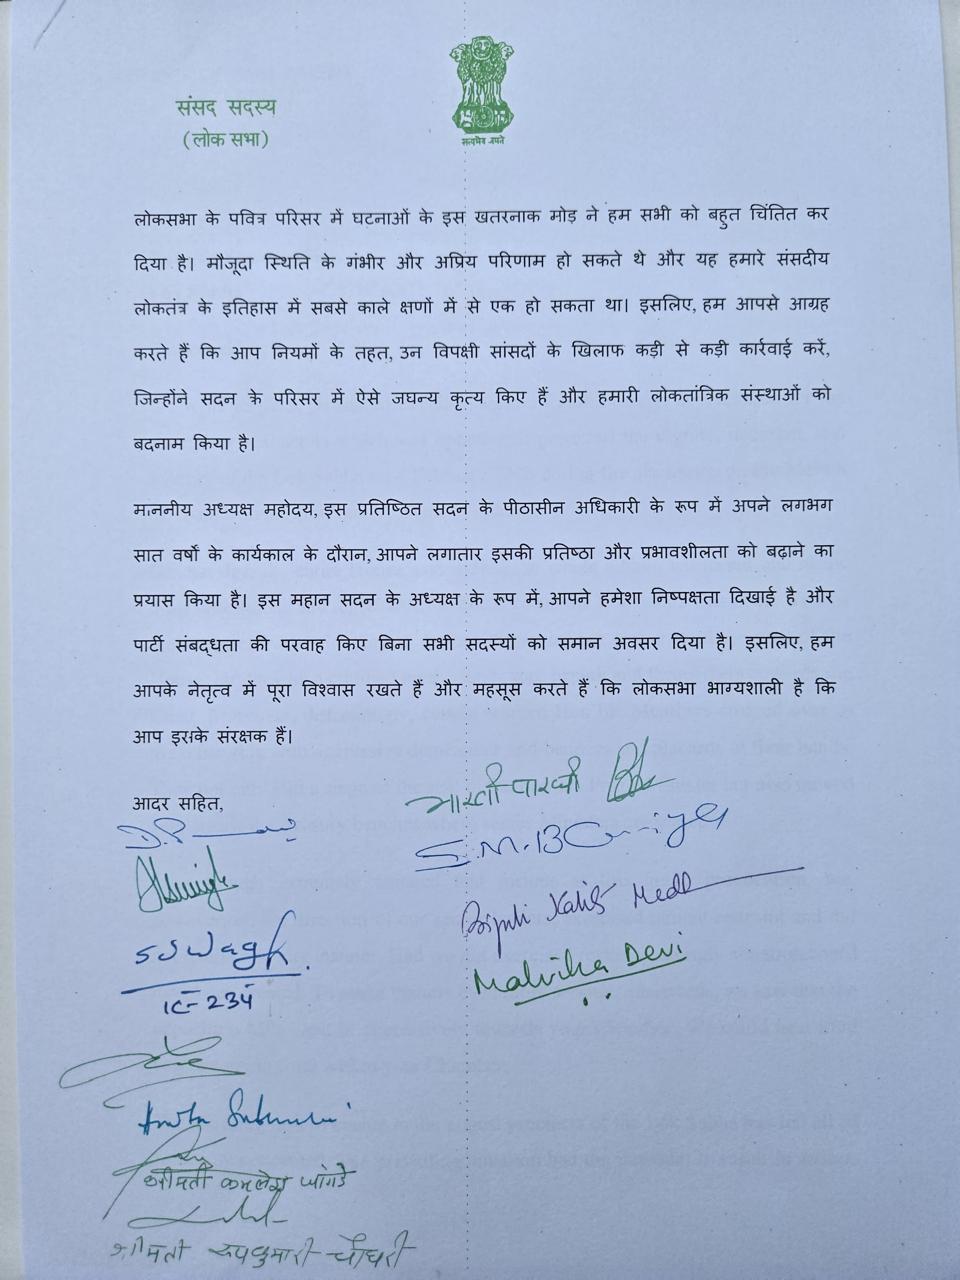 संसद सदस्य
(लोक सभा)
सत्यमेव जयते
लोकसभा के पवित्र परिसर में घटनाओं के इस खतरनाक मोड़ ने हम सभी को बहुत चिंतित कर
दिया है। मौजूदा स्थिति के गंभीर और अप्रिय परिणाम हो सकते थे और यह हमारे संसदीय
लोकतंत्र के इतिहास में सबसे काले क्षणों में से एक हो सकता था। इसलिए, हम आपसे आग्रह
करते हैं कि आप नियमों के तहत, उन विपक्षी सांसदों के खिलाफ कड़ी से कड़ी कार्रवाई करें,
जिन्होंने सदन के परिसर में ऐसे जघन्य कृत्य किए हैं और हमारी लोकतांत्रिक संस्थाओं को
बदनाम किया है।
माननीय अध्यक्ष महोदय, इस प्रतिष्ठित सदन के पीठासीन अधिकारी के रूप में अपने लगभग
सात वर्षों के कार्यकाल के दौरान, आपने लगातार इसकी प्रतिष्ठा और प्रभावशीलता को बढ़ाने का
प्रयास किया है। इस महान सदन के अध्यक्ष के रूप में, आपने हमेशा निष्पक्षता दिखाई है और
पार्टी संबद्धता की परवाह किए बिना सभी सदस्यों को समान अवसर दिया है। इसलिए, हम
आपके नेतृत्व में पूरा विश्वास रखते हैं और महसूस करते हैं कि लोकसभा भाग्यशाली है कि
आप इसके संरक्षक हैं।
आदर सहित,
भारती पारधी
S S Wagh.
IC-234
Malvika Devi
श्रीमती कमलेश जांगडे
श्रीमती रूपकुमारी चौधरी